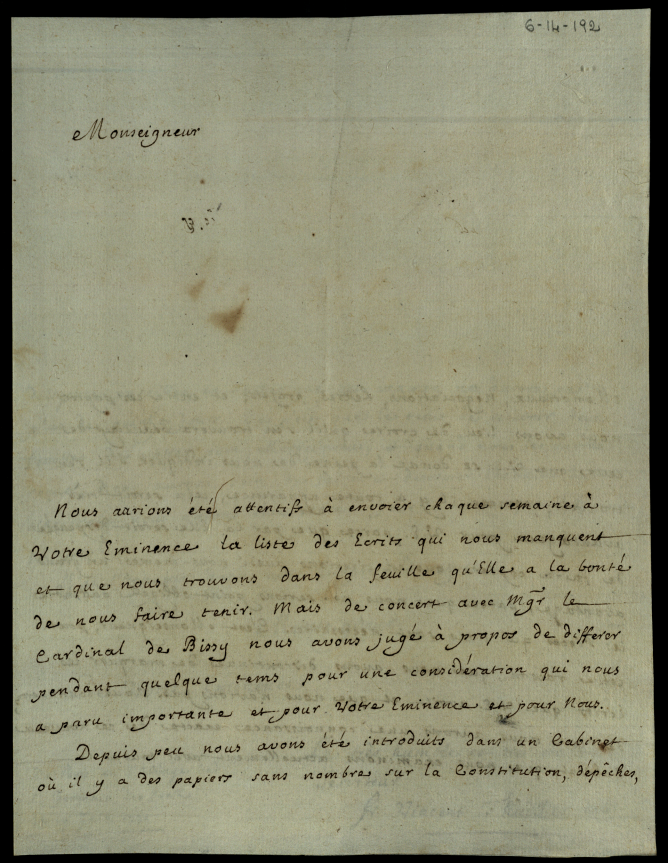 6-14-192
Monseigneur
Nous aurions été attentifs à envoier chaque semaine à
Votre Eminence la liste des Ecrits qui nous manquent
et que nous trouvons dans la feuille qu'Elle a la bonté
de nous faire tenir. Mais de concert avec Mgr le
Cardinal de Bissy nous avons jugé à propos de differer
pendant quelque tems pour une considération qui nous
a paru importante et pour Votre Eminence et pour Nous.
Depuis peu nous avons été introduits dans un Cabinet
où il y a des papiers sans nombre sur la Constitution, dépêches,